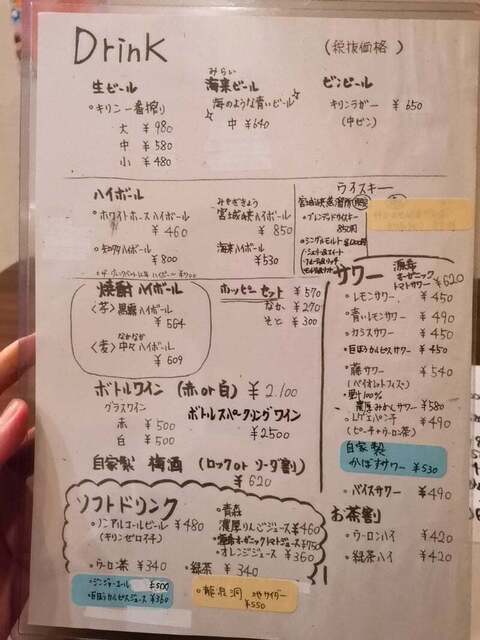 Drink
(税抜価格)
生ビール
・キリン一番搾り
大 ¥980
中 ¥580
小 ¥480
みらい
海来ビール
海のような青いビール
中 ¥640
ビンビール
キリンラガー ¥650
(中ビン)
ハイボール
・ホワイトホースハイボール
¥460
・知多ハイボール
¥800
みやぎきょう
宮城峡ハイボール
¥850
海来ハイボール
¥530
ウイスキー
宮城峡蒸溜所限定
・ブレンデッドウイスキー
・シングルモルト
焼酎ハイボール
〈芋〉黒霧ハイボール
¥564
なかなか
〈麦〉中々ハイボール
¥609
ホッピーセット ¥570
なか ¥270
そと ¥300
ボトルワイン (赤or白) ¥2.100
グラスワイン
赤 ¥500
白 ¥500
ボトルスパークリングワイン
¥2500
自家製 梅酒 (ロックor ソーダ割)
¥620
サワー
濃厚
オーガニック
トマトサワー ¥620
・レモンサワー ¥450
・青いレモンサワー ¥490
・カシスサワー ¥450
・巨ほうカルピスサワー ¥450
・藤サワー ¥540
(バイオレットフィズ)
・果汁100%
濃厚みかんサワー ¥580
・レゲエパンチ ¥490
(ピーチウーロン茶)
自家製
かぼすサワー ¥530
・バイスサワー ¥490
お茶割
・ウーロンハイ ¥420
・緑茶ハイ ¥420
ソフトドリンク
・ノンアルコールビール ¥480
(キリンゼロイチ)
・ウーロン茶 ¥340
・青森
濃厚りんごジュース ¥460
・濃厚オーガニックトマトジュース ¥750
・オレンジジュース ¥360
・緑茶 ¥340
・ジンジャーエール ¥300
・巨ほうカルピスジュース ¥360
・龍泉洞 サイダー
¥550